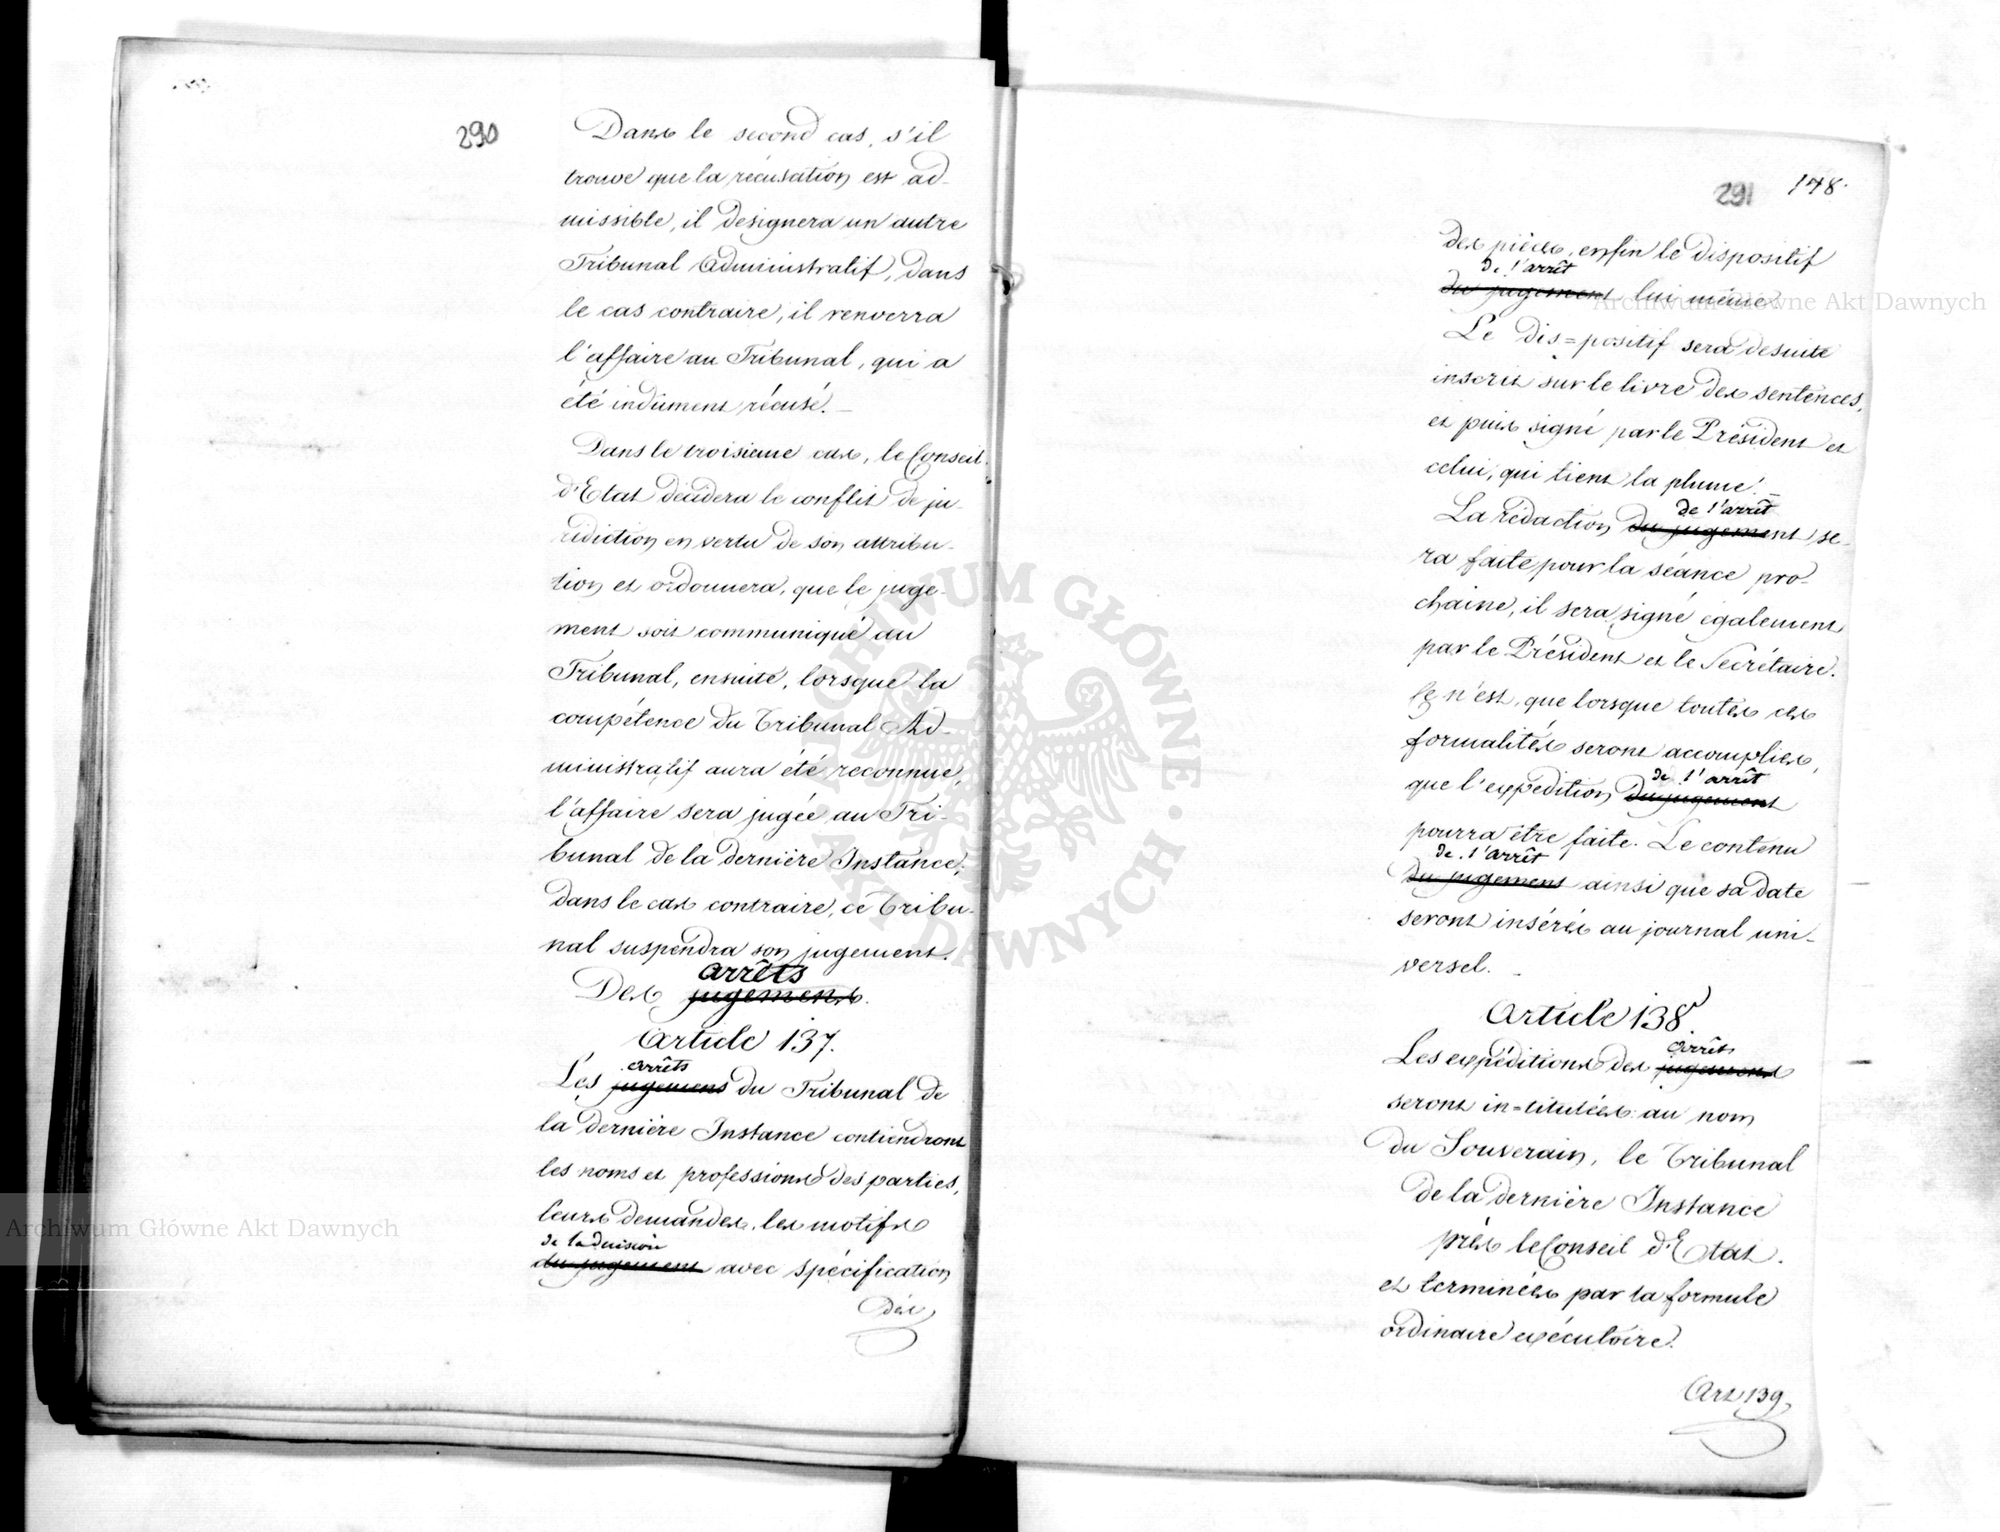 290
Dans le second cas, s'il
trouve que la récusation est ad-
missible, il designera un autre
Tribunal Administratif, dans
le cas contraire, il renverra
l'affaire au Tribunal, qui a
été indûment récusé. —
Dans le troisieme cas, le Conseil
d'Etat décidera le conflit de ju-
ridiction en vertu de son attribu-
tion et ordonnera, que le juge-
ment soit communiqué au
Tribunal, ensuite, lorsque la
compétence du Tribunal Ad-
ministratif aura été reconnue,
l'affaire sera jugée au Tri-
bunal de la dernière Instance;
dans le cas contraire, ce Tribu-
nal suspendra son jugement.
arrêts
Des jugements.
Article 137.
arrêts
Les jugemens du Tribunal de
la dernière Instance contiendront
les noms et professions des parties,
leurs demandes, les motifs
de la decision
du jugement avec spécification
des
291 148.
des pièces, enfin le dispositif
de l'arrêt
du jugement lui même.
Le dis=positif sera desuite
inscrit sur le livre des sentences,
et puis signé par le Président et
celui, qui tient la plume. =
de l'arrêt
La rédaction du jugement se-
ra faite pour la séance pro-
chaine, il sera signé également
par le Président et le Secrétaire.
Ce n'est, que lorsque toutes ces
formalités seront accomplies,
de l'arrêt
que l'expédition du jugement
pourra être faite. Le contenu
de l'arrêt
du jugement ainsi que sa date
seront insérés au journal uni-
versel. -
Article 138.
arrêts
Les expéditions des jugements
seront in=titulées au nom
du Souverain, le Tribunal
de la dernière Instance
près le Conseil d'Etat.
et terminées par la formule
ordinaire exécutoire.
Art 139.
Archiwum Główne Akt Dawnych
Archiwum Główne Akt Dawnych
ARCHIWUM GŁÓWNE · AKT DAWNYCH ·